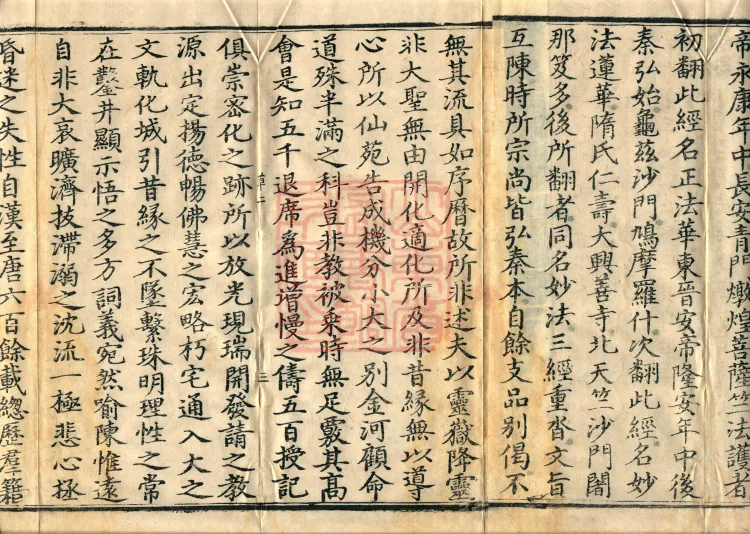 帝永康年中長安青門燉煌菩薩竺法護者
初翻此經名正法華東晉安帝隆安年中後
秦弘始龜茲沙門鳩摩羅什次翻此經名妙
法蓮華隋氏仁壽大興善寺北天竺沙門闍
那笈多後所翻者同名妙法三經重沓文旨
互陳時所宗尚皆弘秦本自餘支品別偈不
無其流具如序曆故所非述夫以靈嶽降靈
非大聖無由開化適化所及非昔緣無以導
心所以仙苑告成機分小大之別金河顧命
道殊半滿之科豈非教被乘時無足覈其高
會是知五千退席為進增慢之儔五百授記
俱崇密化之跡所以放光現瑞開發請之教
源出定揚德暢佛慧之宏略朽宅通入大之
文軌化城引昔緣之不墜繫珠明理性之常
在鑿井顯示悟之多方詞義宛然喻陳惟遠
自非大哀曠濟拔滯溺之沈流一極悲心拯
昏迷之失性自漢至唐六百餘載總歷羣籍